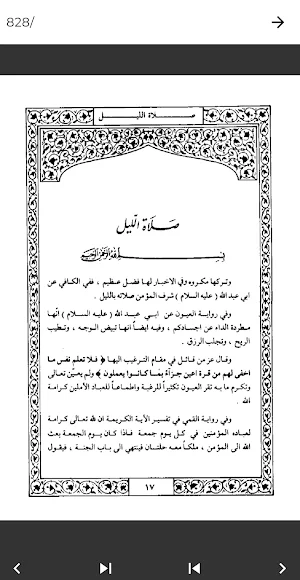 828/
صلاة الليل
صَلَاة اللَّيل
وتركها مكروه وفي الاخبار لها فضل عظيم ، ففي الكافي عن
ابي عبد الله ( عليه السلام ) شرف المؤمن صلاته بالليل .
وفي رواية العيون عن ابي عبد الله ( عليه السلام ) انّها
مطردة الداء عن اجسادكم ، وفيه ايضاً انها تبيض الوجه ، وتطيب
الريح ، وتجلب الرزق .
وقال عز من قائل في مقام الترغيب اليها ﴿ فلا تعلم نفس ما
اخفي لهم من قرة اعين جزآءً بما كانوا يعملون ﴾ ولم يعيّن تعالى
وتكرم ما به تقر العيون تكثيراً للرغبة واطماعاً للعباد الآملين كرامة
الله .
وفي رواية القمي في تفسير الآية الكريمة ان لله تعالى كرامة
لعباده المؤمنين في كل يوم جمعة فاذا كان يوم الجمعة بعث
الله الى المؤمن ، ملكاً معه حلتان فينتهي الى باب الجنة ، فيقول
١٧